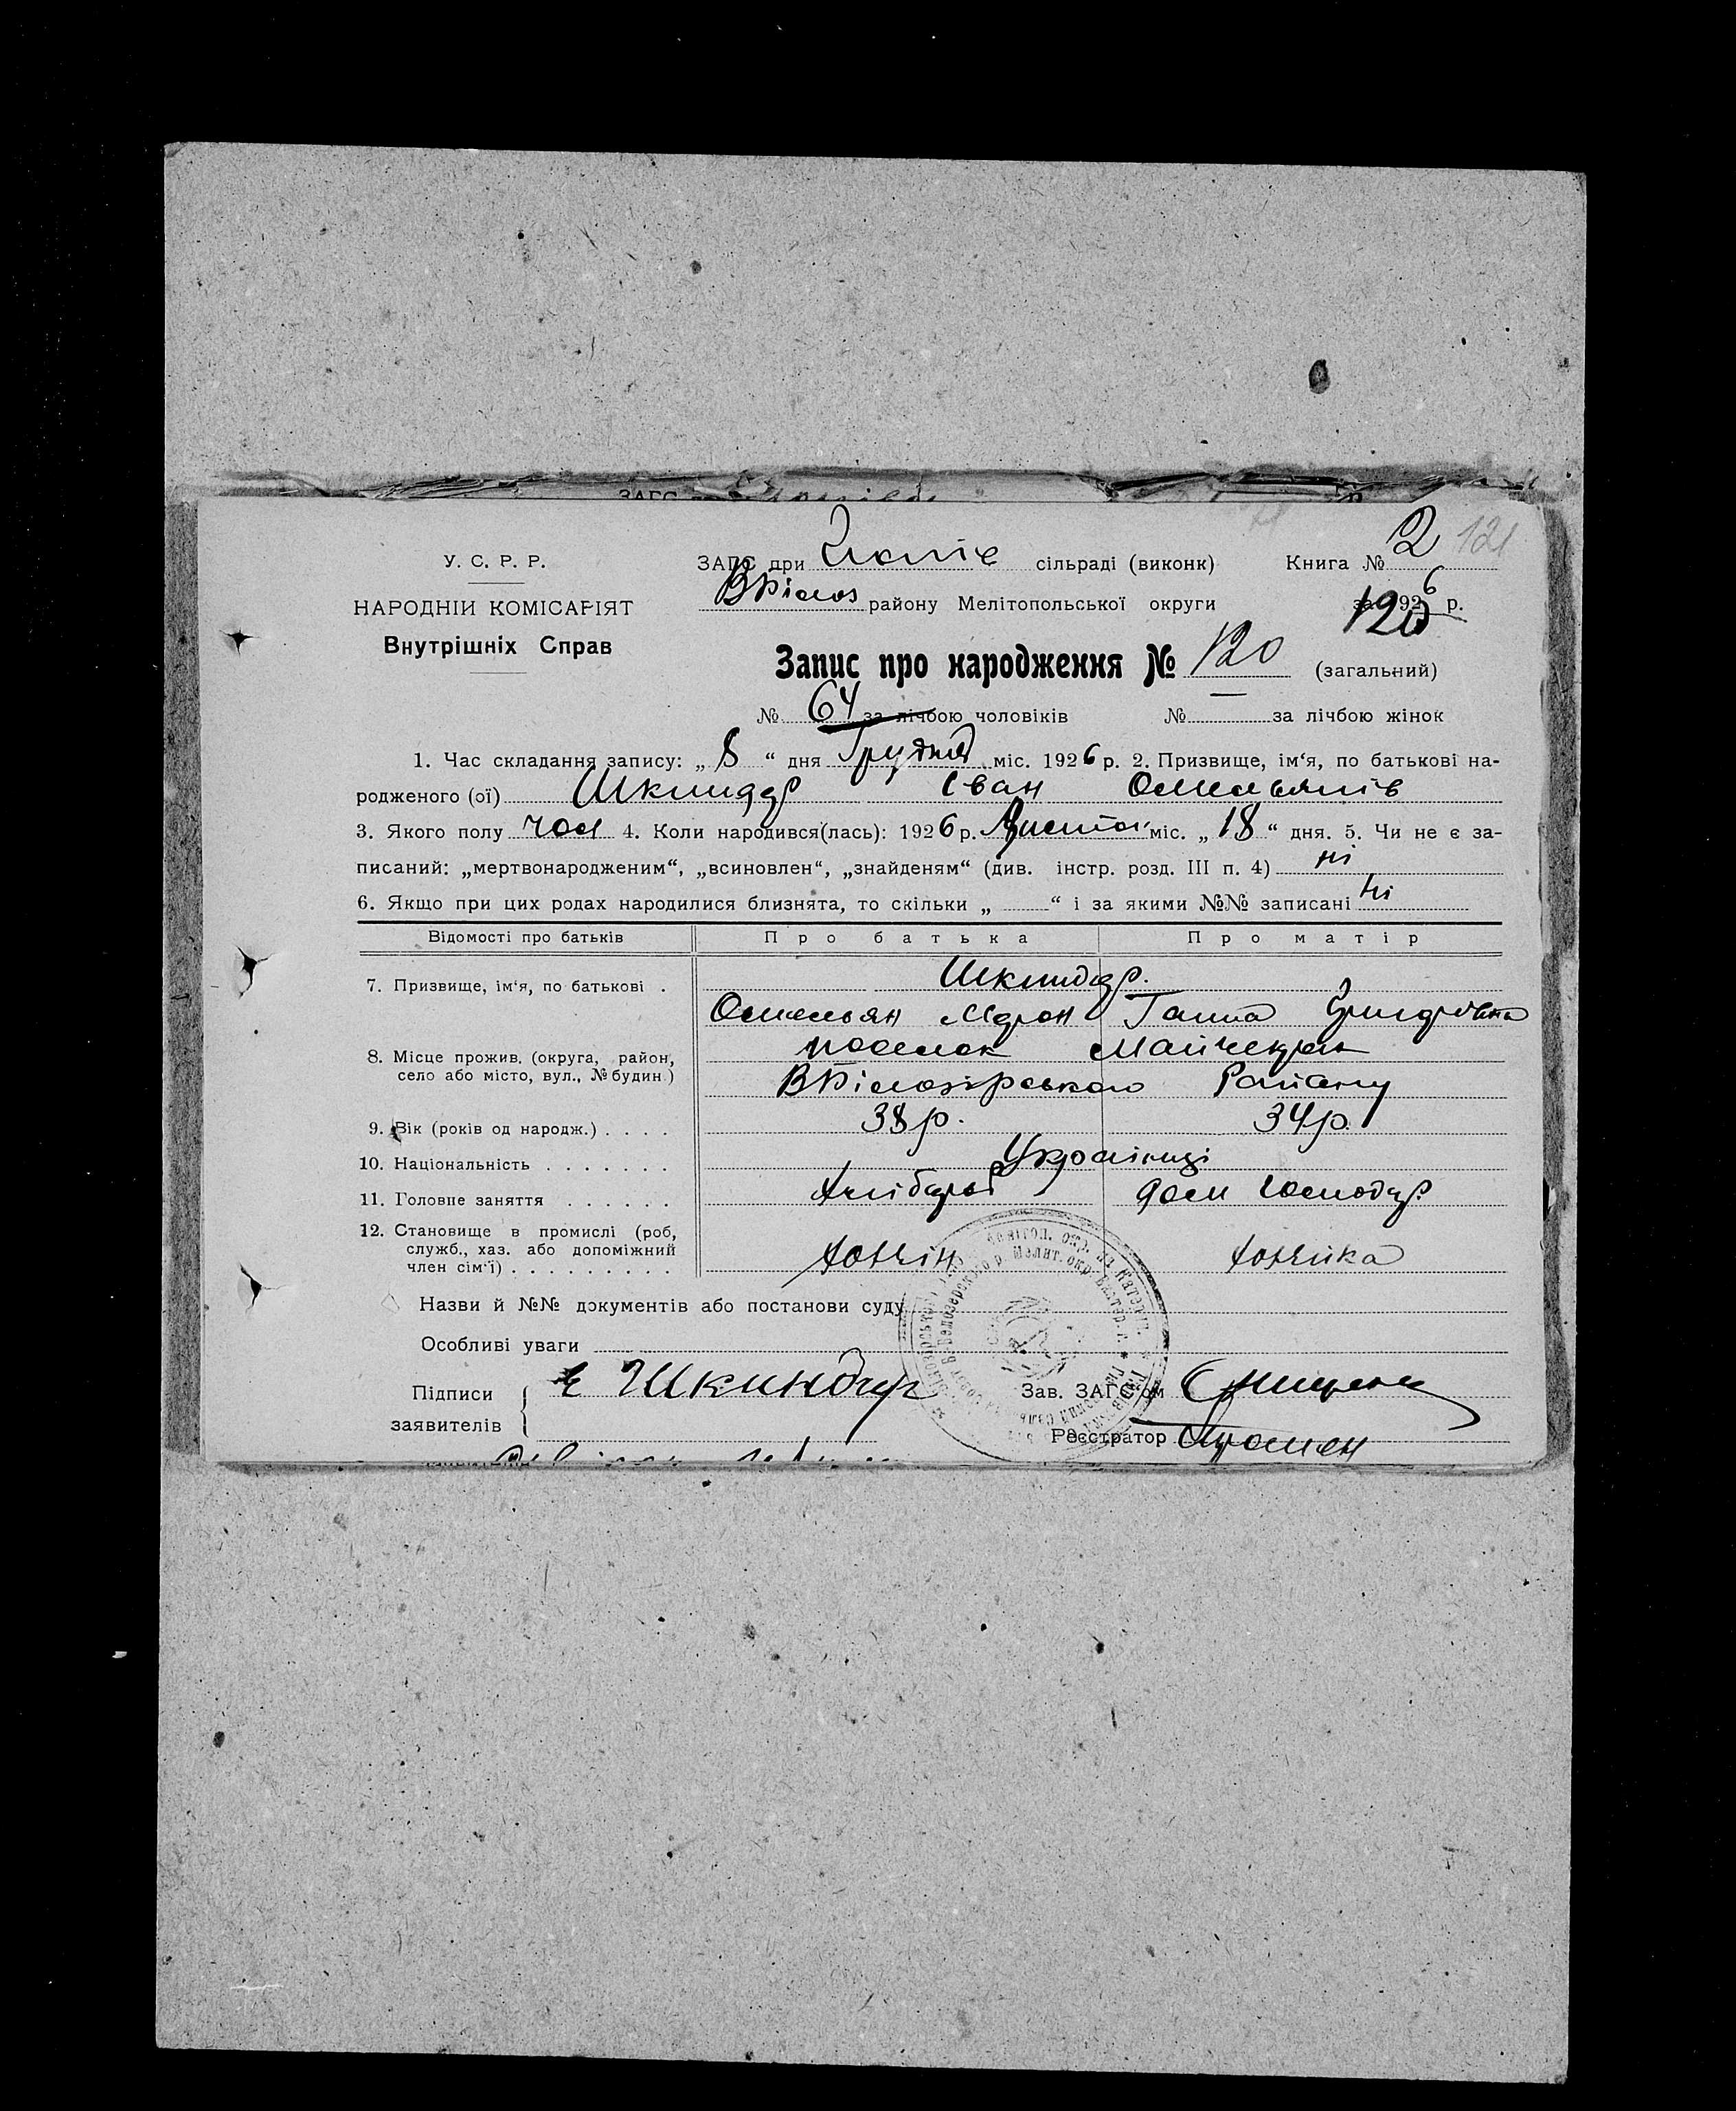 121
У. С. Р. Р.
НАРОДНІЙ КОМІСАРІЯТ
Внутрішніх Справ
ЗАГС при сільраді (виконк) Книга № 2
ВБілоз району Мелітопольської округи за 1926 р.
120
Запис про народження № 120 (загальний)
№ 64 за лічбою чоловіків № за лічбою жінок
1. Час складання запису: „ 8 “ дня Грудня міс. 1926 р. 2. Призвище, ім‘я, по батькові на-
родженого (ої) Шкиндер Іван Омельянів
3. Якого полу чол 4. Коли народився(лась): 1926 р. Листоп міс. „ 18 “ дня. 5. Чи не є за-
писаний: „мертвонародженим“, „всиновлен“, „знайденям“ (див. інстр. розд. III п. 4) ні
6. Якщо при цих родах народилися близнята, то скільки „ “ і за якими №№ записані ні
Відомості про батьків Про батька Про матір
7. Призвище, ім‘я, по батькові . Шкиндер.
Омельян Мирон Ганна Григорівна
8. Місце прожив. (округа, район, село або місто, вул., № будин.) поселок
ВБілозірського Району
9. Вік (років од народж.) . . . . 38 р. 34 р.
10. Національність . . . . . . . Українці
11. Головне заняття . . . . . . Хлібороб дом господар.
12. Становище в промислі (роб,
служб., хаз. або допоміжний
член сім‘ї) . . . . . . . . . Хозяін Хозяйка
Назви й №№ документів або постанови суду
Особливі уваги
Підписи
заявителів
Шкиндер
Зав. ЗАГС‘ом
Реєстратор